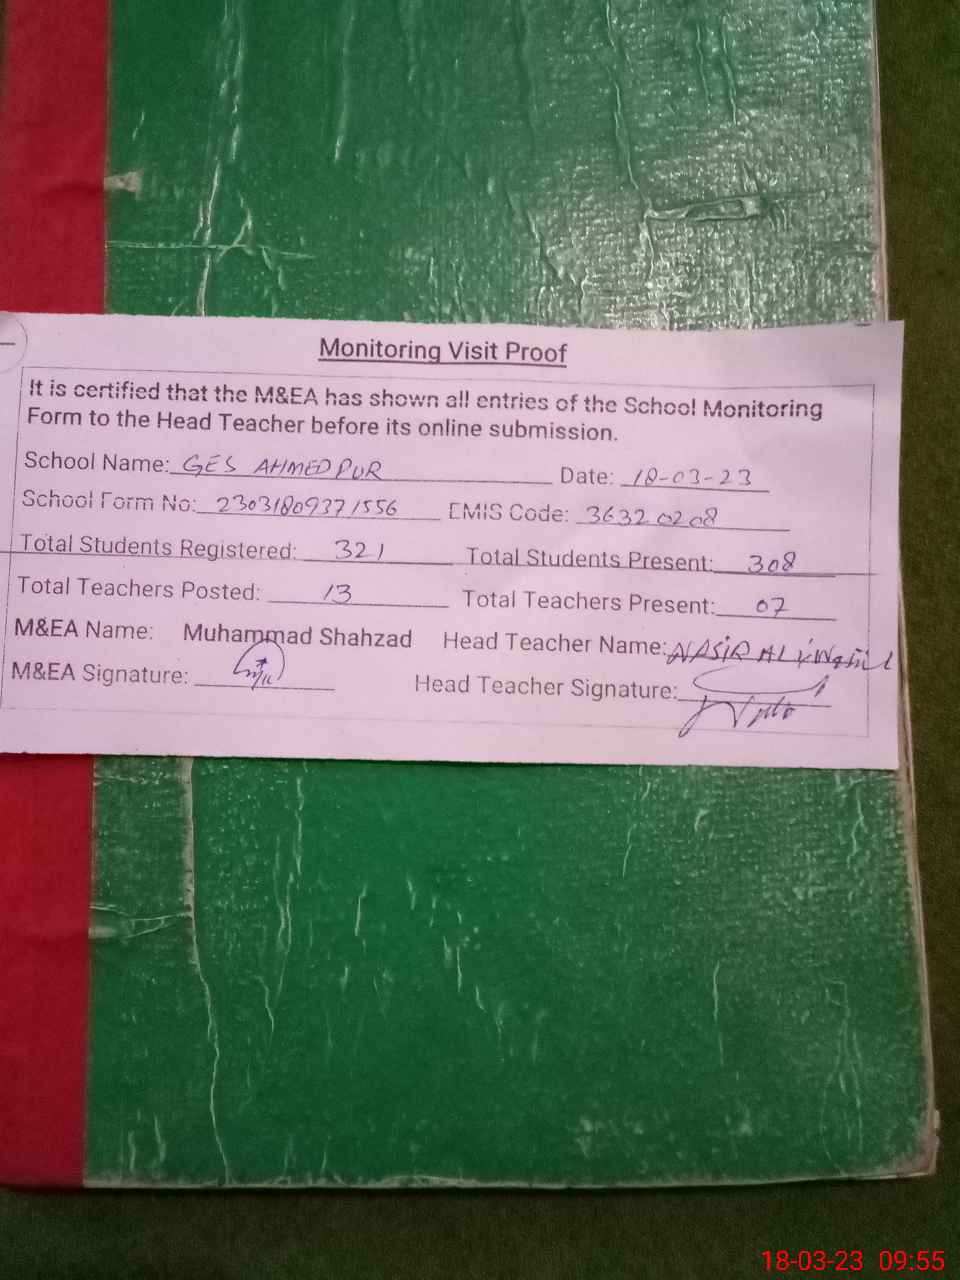 Monitoring Visit Proof
It is certified that the M&EA has shown all entries of the School Monitoring
Form to the Head Teacher before its online submission.
School Name: GES AHMEDPUR Date: 18-03-23
School Form No: 23031809371556 EMIS Code: 36320208
Total Students Registered: 321 Total Students Present: 308
Total Teachers Posted: 13 Total Teachers Present: 07
M&EA Name: Muhammad Shahzad Head Teacher Name: NASIR ALI
M&EA Signature: Head Teacher Signature:
18-03-23 09:55